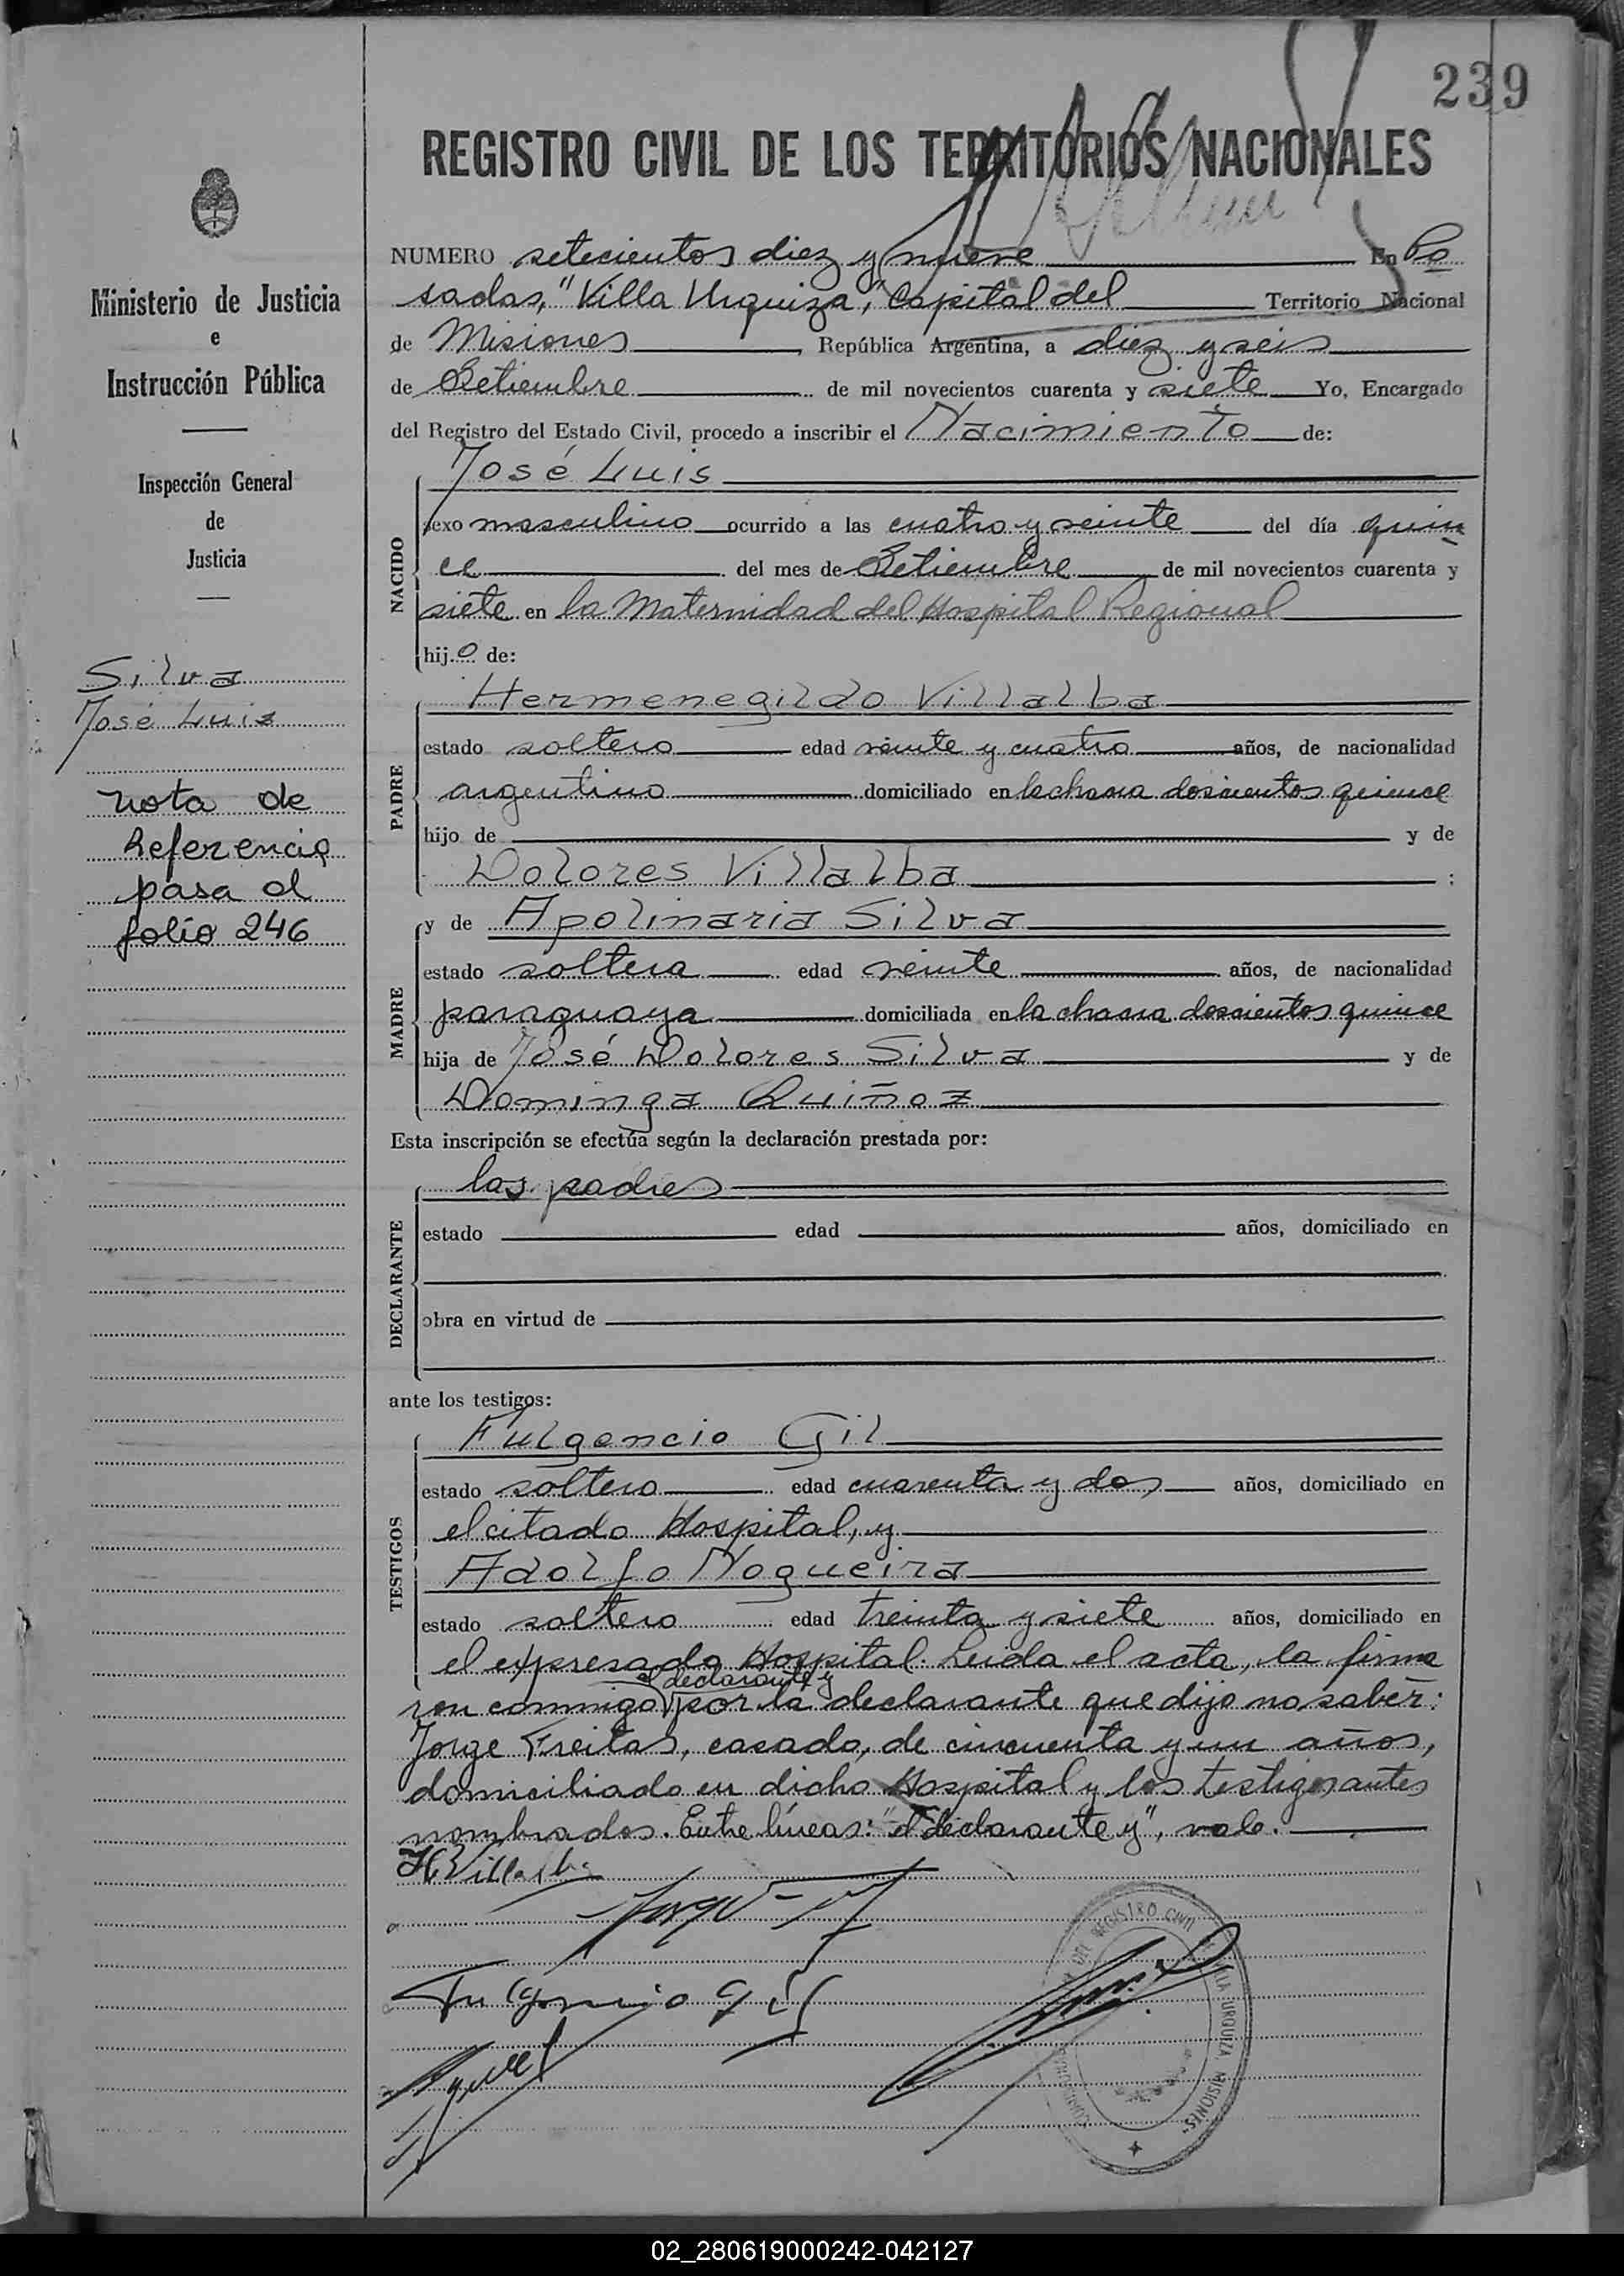 239
REGISTRO CIVIL DE LOS TERRITORIOS NACIONALES
Ministerio de Justicia
e
Instrucción Pública
Inspección General
de
Justicia
Silva
José Luis
nota de
Referencia
pasa al
folio 246
NUMERO setecientos diez y nueve En Po
sadas, "Villa Urquiza", Capital del Territorio Nacional
de Misiones, República Argentina, a diez y seis
de Setiembre de mil novecientos cuarenta y siete Yo, Encargado
del Registro del Estado Civil, procedo a inscribir el Nacimiento de:
NACIDO
José Luis
sexo masculino ocurrido a las cuatro y veinte del día quin
ce del mes de Setiembre de mil novecientos cuarenta y
siete en la Maternidad del Hospital Regional
hijo de:
PADRE
Hermenegildo Villalba
estado soltero edad veinte y cuatro años, de nacionalidad
argentino domiciliado en la chacra doscientos quince
hijo de y de
Dolores Villalba :
MADRE
y de Apolinaria Silva
estado soltera edad veinte años, de nacionalidad
paraguaya domiciliada en la chacra doscientos quince
hija de José Dolores Silva y de
Dominga Quiñoz
Esta inscripción se efectúa según la declaración prestada por:
DECLARANTE
los padres
estado edad años, domiciliado en
obra en virtud de
ante los testigos:
TESTIGOS
Fulgencio Gil
estado soltero edad cuarenta y dos años, domiciliado en
el citado Hospital, y
Adolfo Nogueira
estado soltero edad treinta y siete años, domiciliado en
el expresado Hospital. Leida el acta, la firma
el declarante y
ron conmigo por la declarante que dijo no saber:
Jorge Freitas, casado, de cincuenta y un años,
domiciliado en dicho Hospital y los testigos antes
nombrados. Entre líneas: "el declarante y", vale.
H Villalba
Fulgencio Gil
DEL REGISTRO CIVIL VILLA URQUIZA MISIONES
02_280619000242-042127